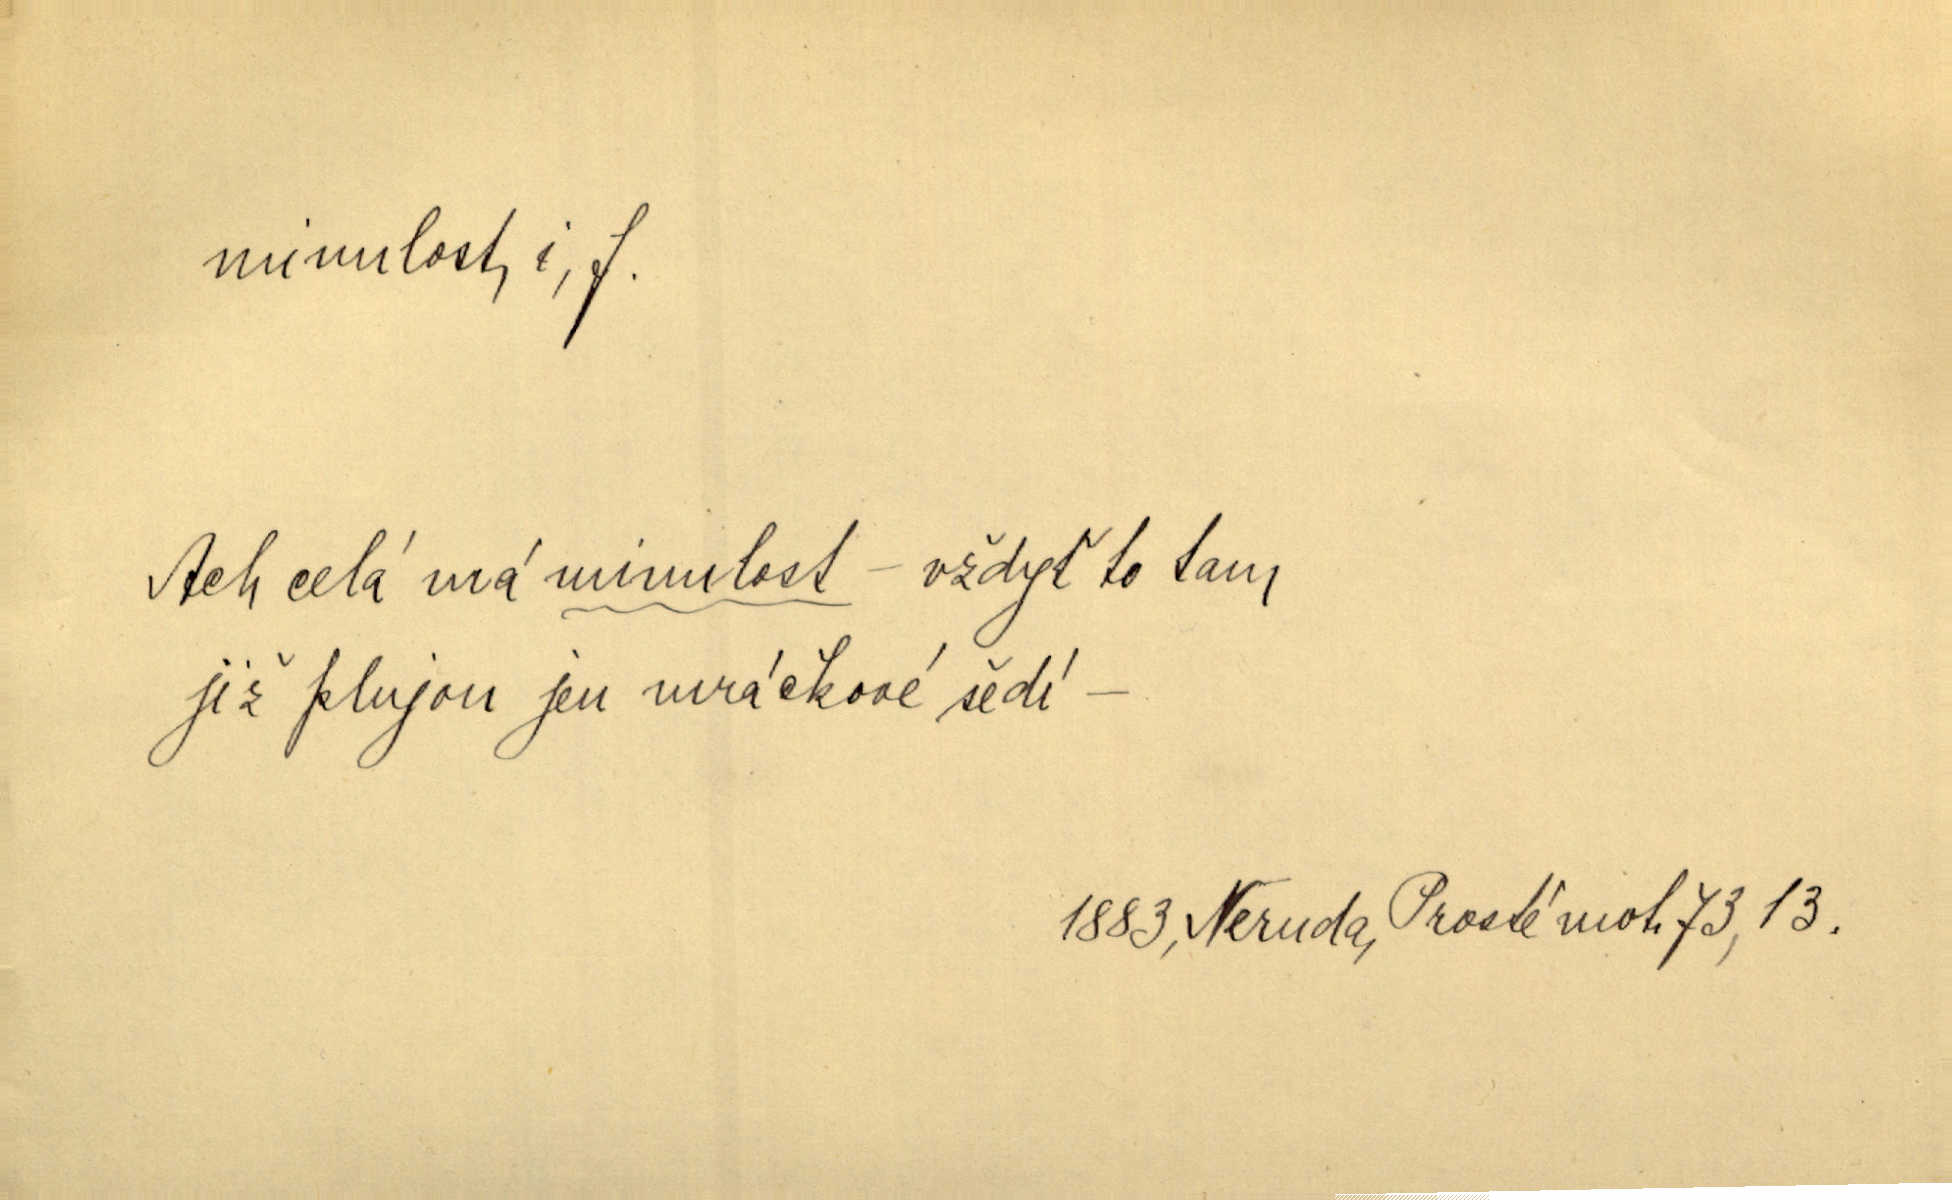 minulost, i, f.
Ach celá má minulost – vždyť to tam
již plujou jen mráčkové šedí –
1883, Neruda, Prosté mot. 73, 13.